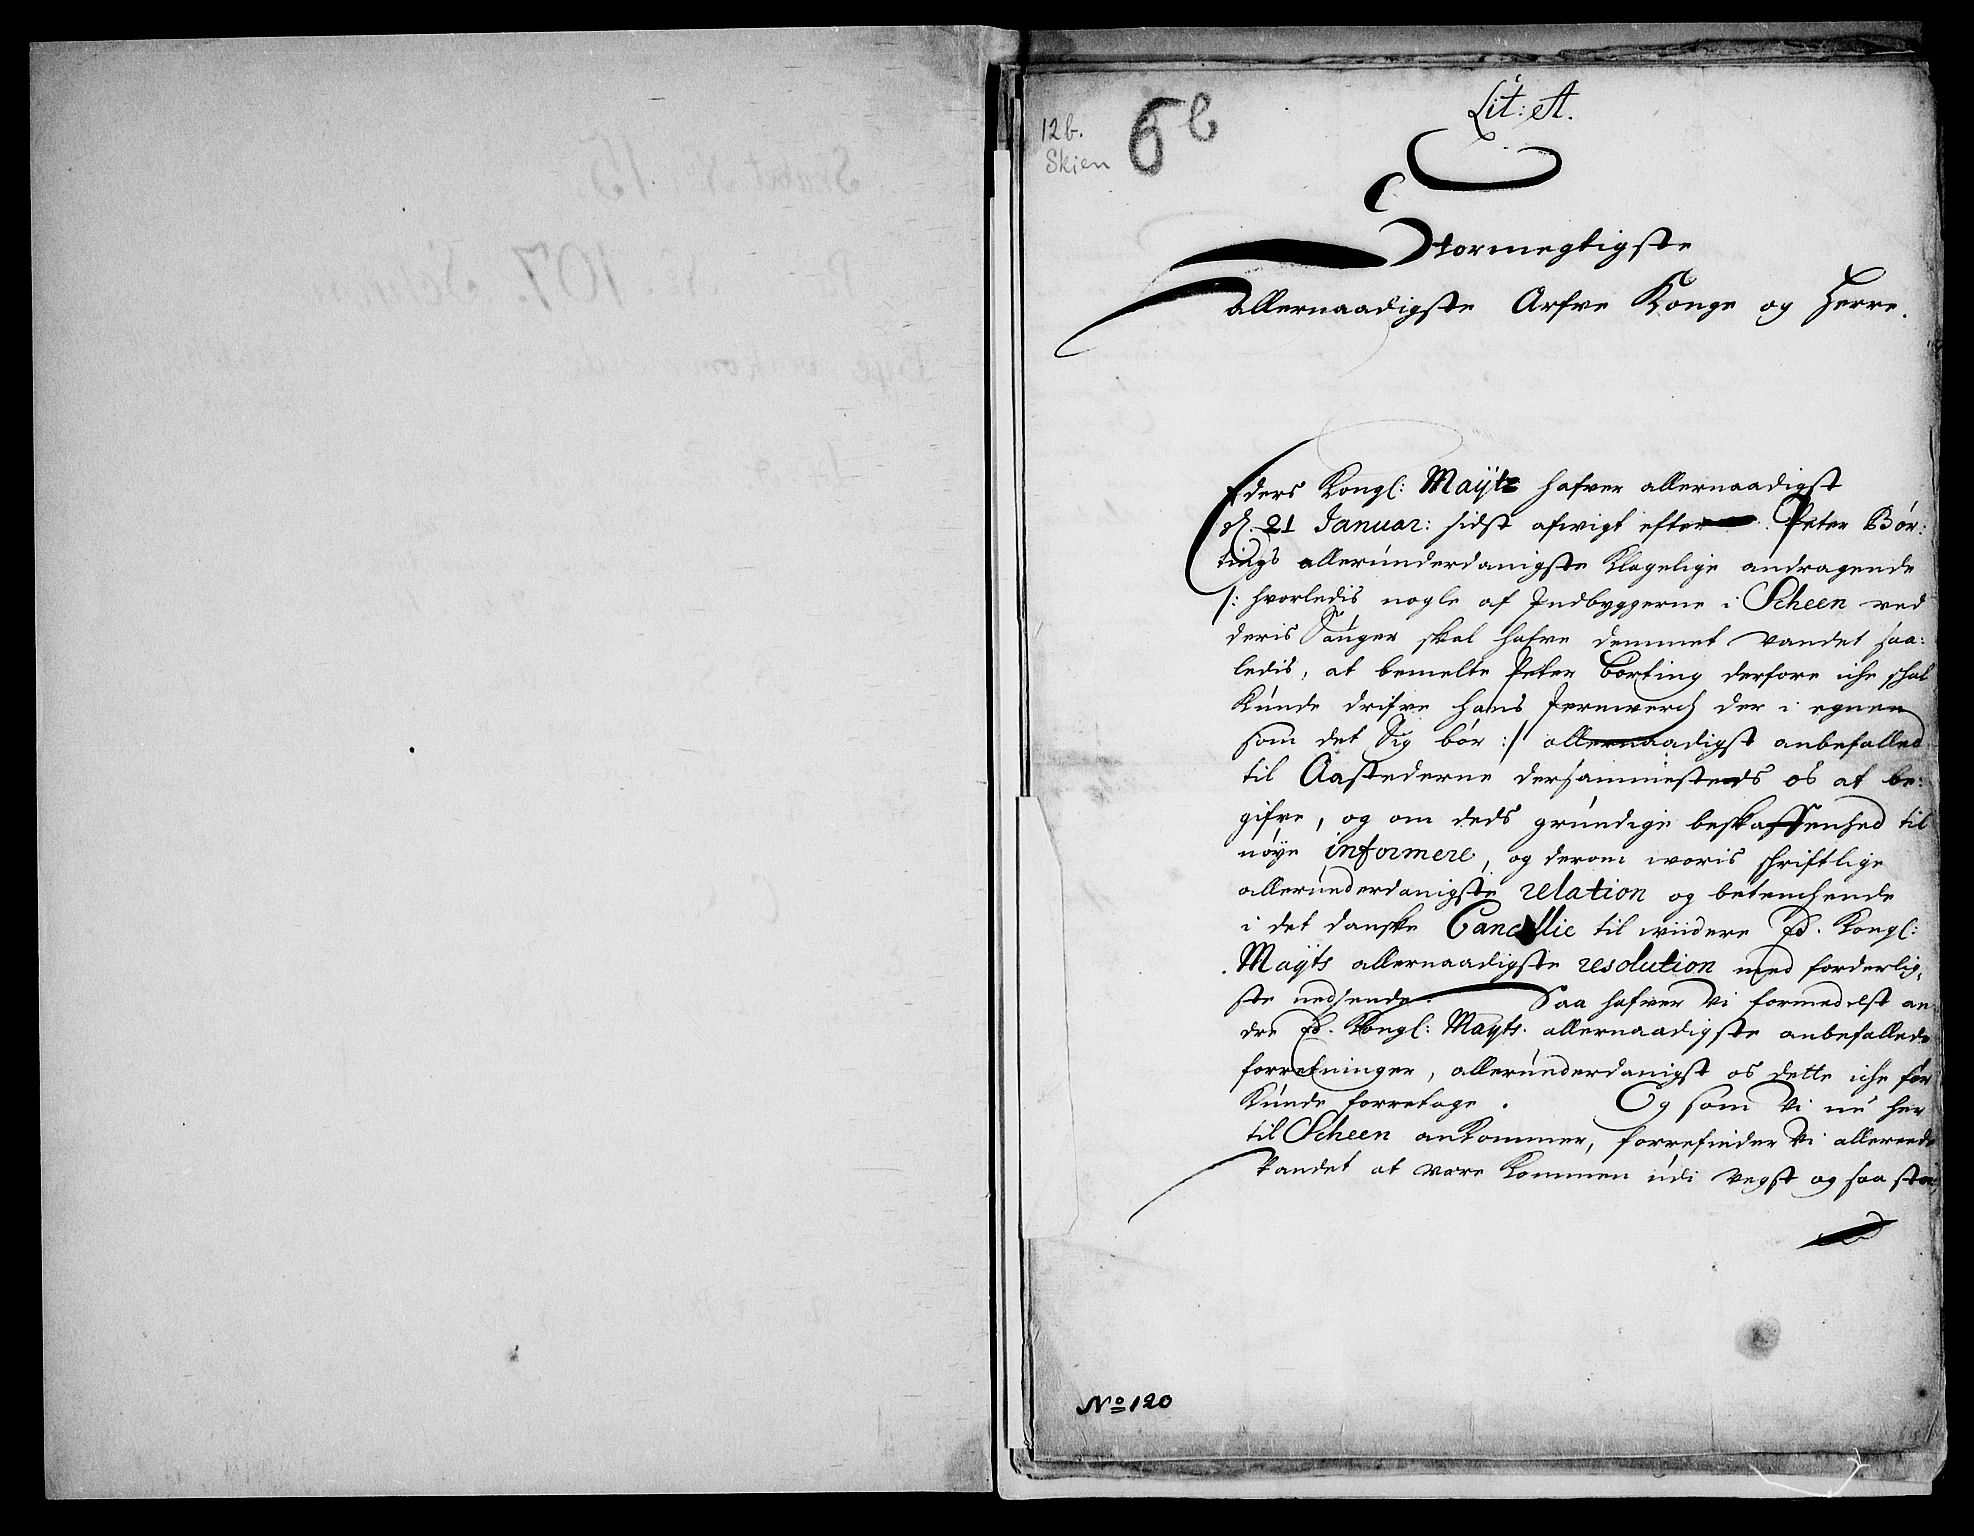 Lit: A.
12b.
Skien
6b
Stormegtigste
Allernaadigste Arfve Konge og Herre.
Eders Kongl: Maÿts hafver allernaadigst
d. 21 Januar: sidst afvigt efter Peter Bör:
tings allerúnderdanigste Klagelige andragende
/: hvorledis nogle af Indbyggerne i Scheen ved
deris Sauger skal hafve demmet vandet saa:
ledis, at bemelte Peter Börting derfore iche skal
Kúnde drifve hans Jernverch der i egnen
som det Sig bör :/ allernaadigst anbefalled
til Aastederne dersammesteds os at be:
gifve, og om deds grúndige beskaffenhed til
nöye informere, og derom woris skriftlige
allerúnderdanigste relation og betenchende
i det danske Cancellie til wiidere Ed. Kongl:
Maÿts allernaadigste resolution med forderlig,
ste nedsende. Saa hafver Vi formedelst an
dre Ed. Kongl: Mayts. allernaadigste anbefallede
forretninger, allerúnderdanigst os dette iche för
Kúnde forretage. Og som Vi nú her
til Scheen ankommer, forrefinder Vi allereede
Vandet at være Kommen údi vegst og saa stor,
No 120